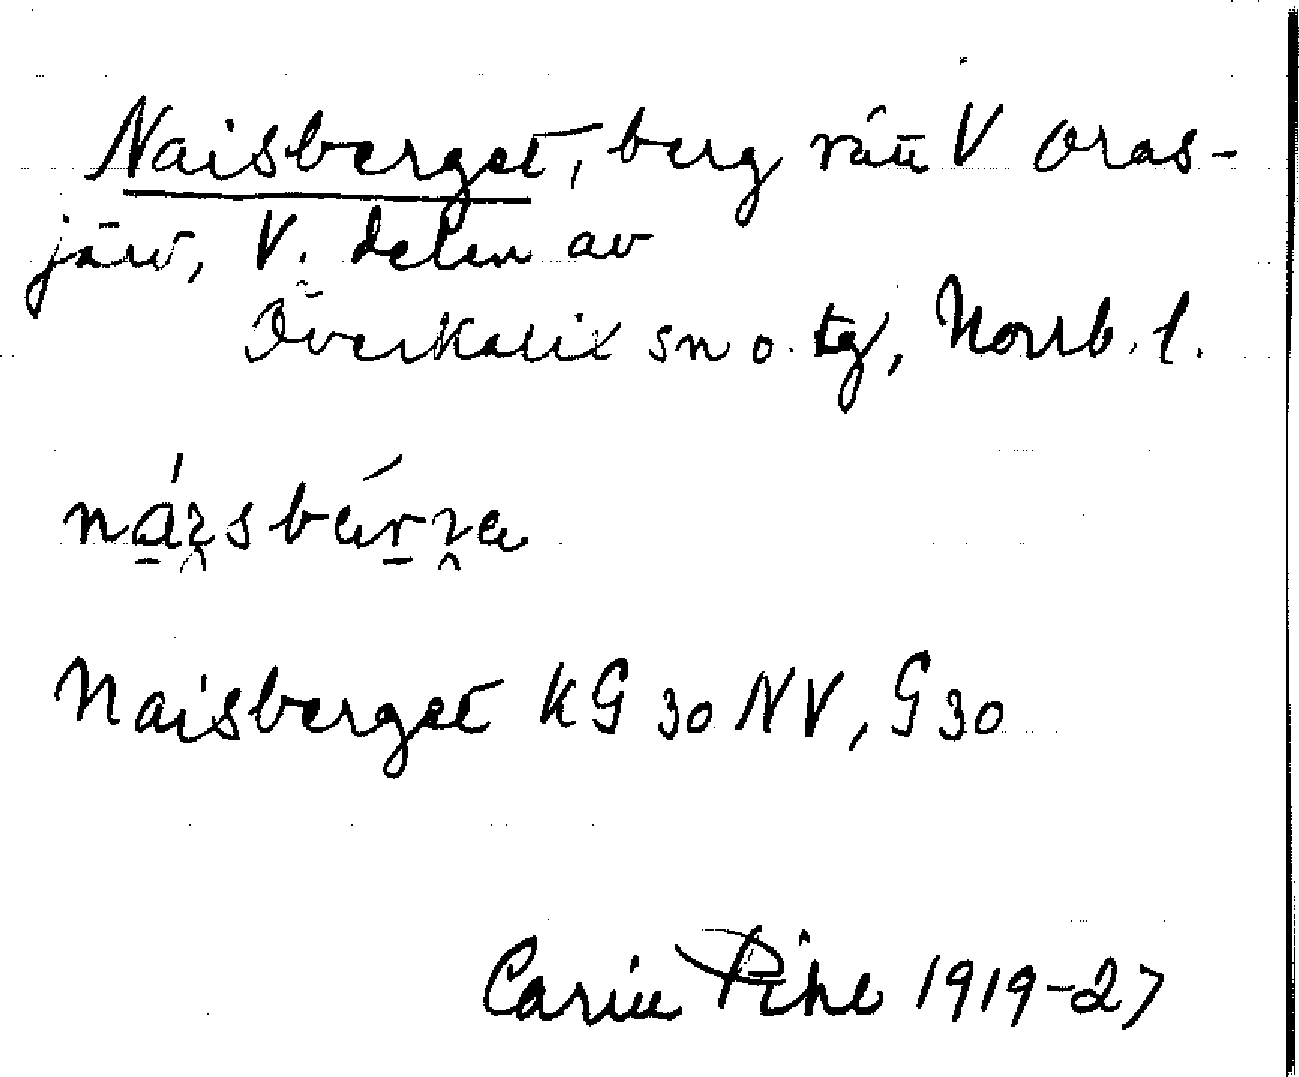 Naisberget, berg rätt V Oras-
järv, V. delen av
Överkalix sn o. tg, Norrb. l.
Naisberget KG 30 NV, G 30
Carin Pihl 1919-27